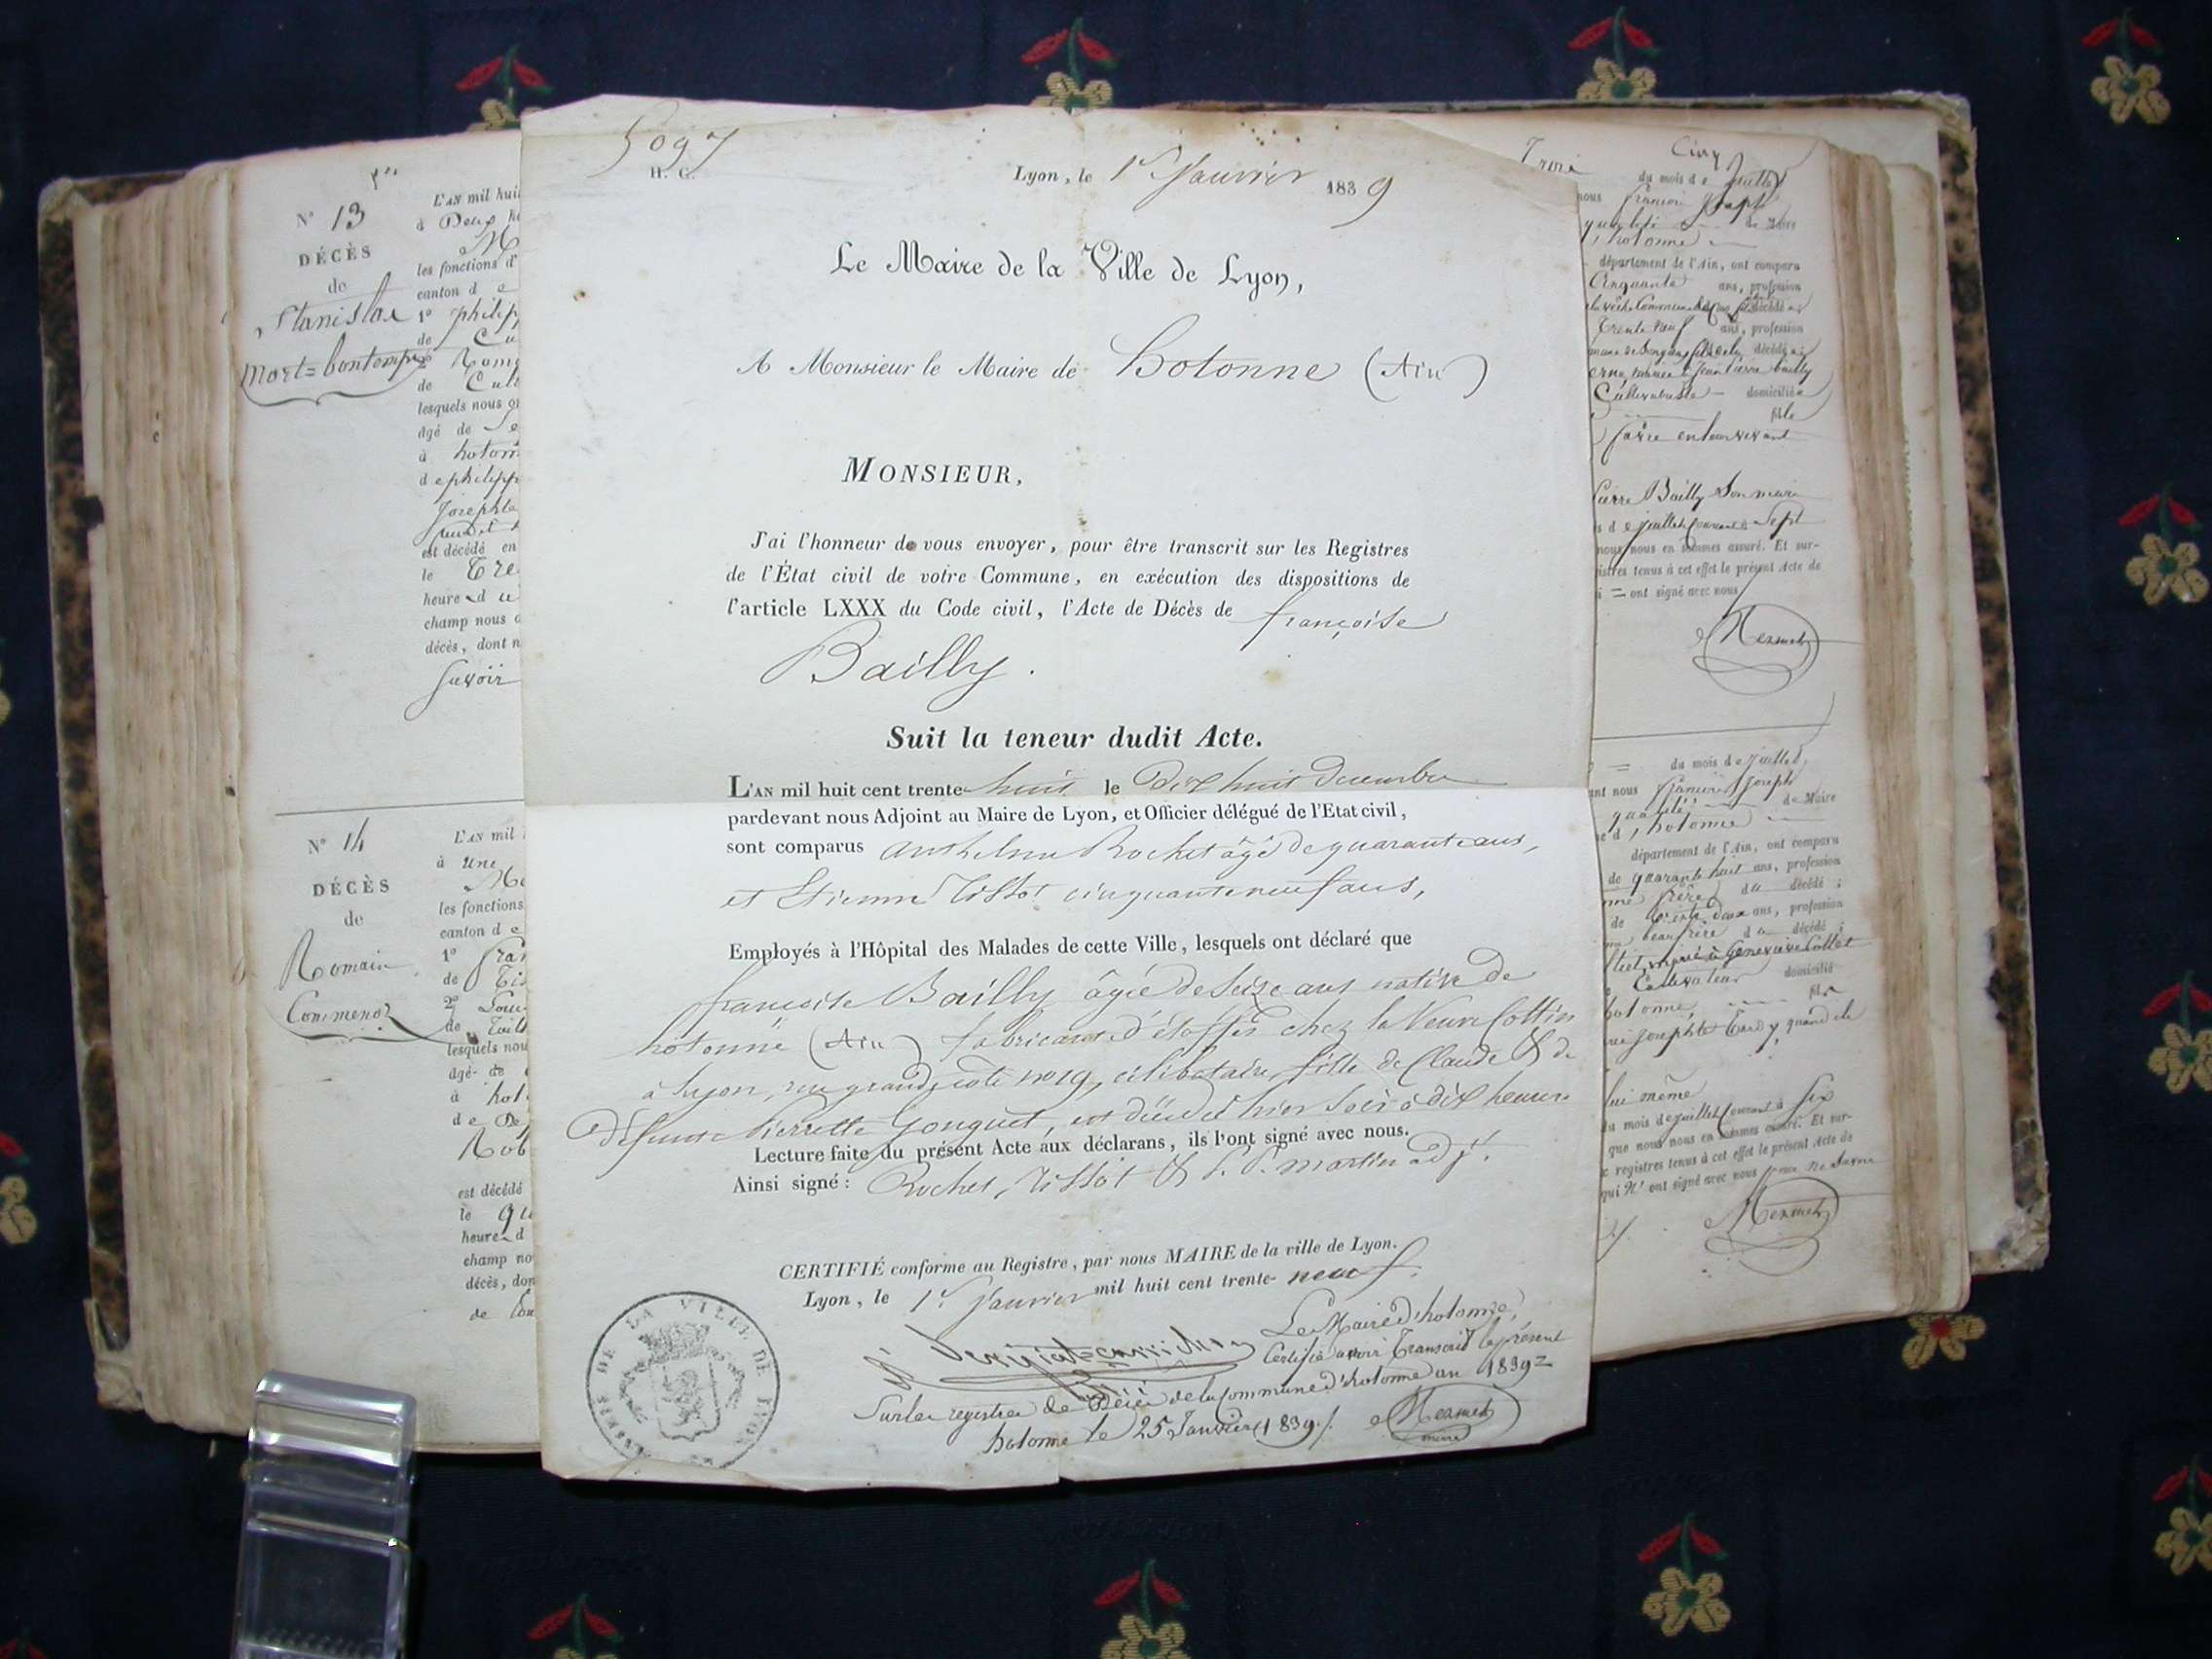 Nº 13
DÉCÈS
de
Stanislas
Mort=bontemps
L'AN mil hui
à Deux h
les fonctions d'
canton d e
1º philip
de Cu
2º Rom
de Cult
lesquels nous on
âgé de Se
à hoton
d e philipp
Josephte
est décédé en
le Tre
heure d u
champ nous a
décès, dont n
Savoir
Nº 14
DÉCÈS
de
Romain
L'AN mil
à Une
les fonctions
canton d e
1º Fran
de
2º Loui
de
lesquels nou
âgé de
à hot
d e
Rob
est décédé
le qu
heure d
champ no
décès, don
de
5097
H. G.
Lyon, le 1er Janvier 1839
Le Maire de la Ville de Lyon,
A Monsieur le Maire de hotonne (Ain)
MONSIEUR,
J'ai l'honneur de vous envoyer, pour être transcrit sur les Registres
de l'État civil de votre Commune, en exécution des dispositions de
l'article LXXX du Code civil, l'Acte de Décès de françoise
Bailly.
Suit la teneur dudit Acte.
L'AN mil huit cent trente huit le Dix huit Decembre
pardevant nous Adjoint au Maire de Lyon, et Officier délégué de l'Etat civil,
sont comparus anthelme Rochet âgé de quarante ans,
et Etienne Tissot cinquante neuf ans,
Employés à l'Hôpital des Malades de cette Ville, lesquels ont déclaré que
françoise Bailly âgée de Seize ans native de
hotonne (Ain) fabricant d'étoffes chez la Veuve Cottin
à Lyon, rue grande côte nº 19, célibataire, fille de Claude & de
Défunte Pierrette Gonguet, est décédée hier soir à dix heures
Lecture faite du présent Acte aux déclarans, ils l'ont signé avec nous.
Ainsi signé: Rochet, Tissot & martin adjt.
CERTIFIÉ conforme au Registre, par nous MAIRE de la ville de Lyon.
Lyon, le 1er Janvier mil huit cent trente-neuf.
Le Maire d'hotonne,
Certifie avoir Transcrit le présent
Sur les registres de Décès de la Commune d'hotonne an 1839=
hotonne le 25 Janvier 1839./. Mermet
maire
MAIRIE DE LA VILLE DE LYON
Trois Cinq
du mois d e juillet
nous françois Joseph
de Maire
d, hotonne
département de l'Ain, ont comparu
Cinquante ans, profession
Trente neuf ans, profession
décédé
Jean Pierre bailly
Cultivatrice domiciliée
fille
favre en leur vivant
Pierre Bailly Son mari
s d e juillet Courant à Sept
nous nous en sommes assuré. Et sur-
istres tenus à cet effet le présent Acte de
ont signé avec nous
Mermet
du mois de juillet,
ant nous françois Joseph
qualité de Maire
e d, hotonne
département de l'Ain, ont comparu
de quarante huit ans, profession
frère du décédé;
de deux ans, profession
beau frère du décédé;
marié à Geneviève Collet
Cultivateur domicilié
hotonne, fils
Josephte Tardy, quand ile
lui même
du mois de juillet Courant à Six
que nous nous en sommes assuré. Et sur-
registres tenus à cet effet le présent Acte de
qui n' ont signé avec nous pour ne Savoir
Mermet